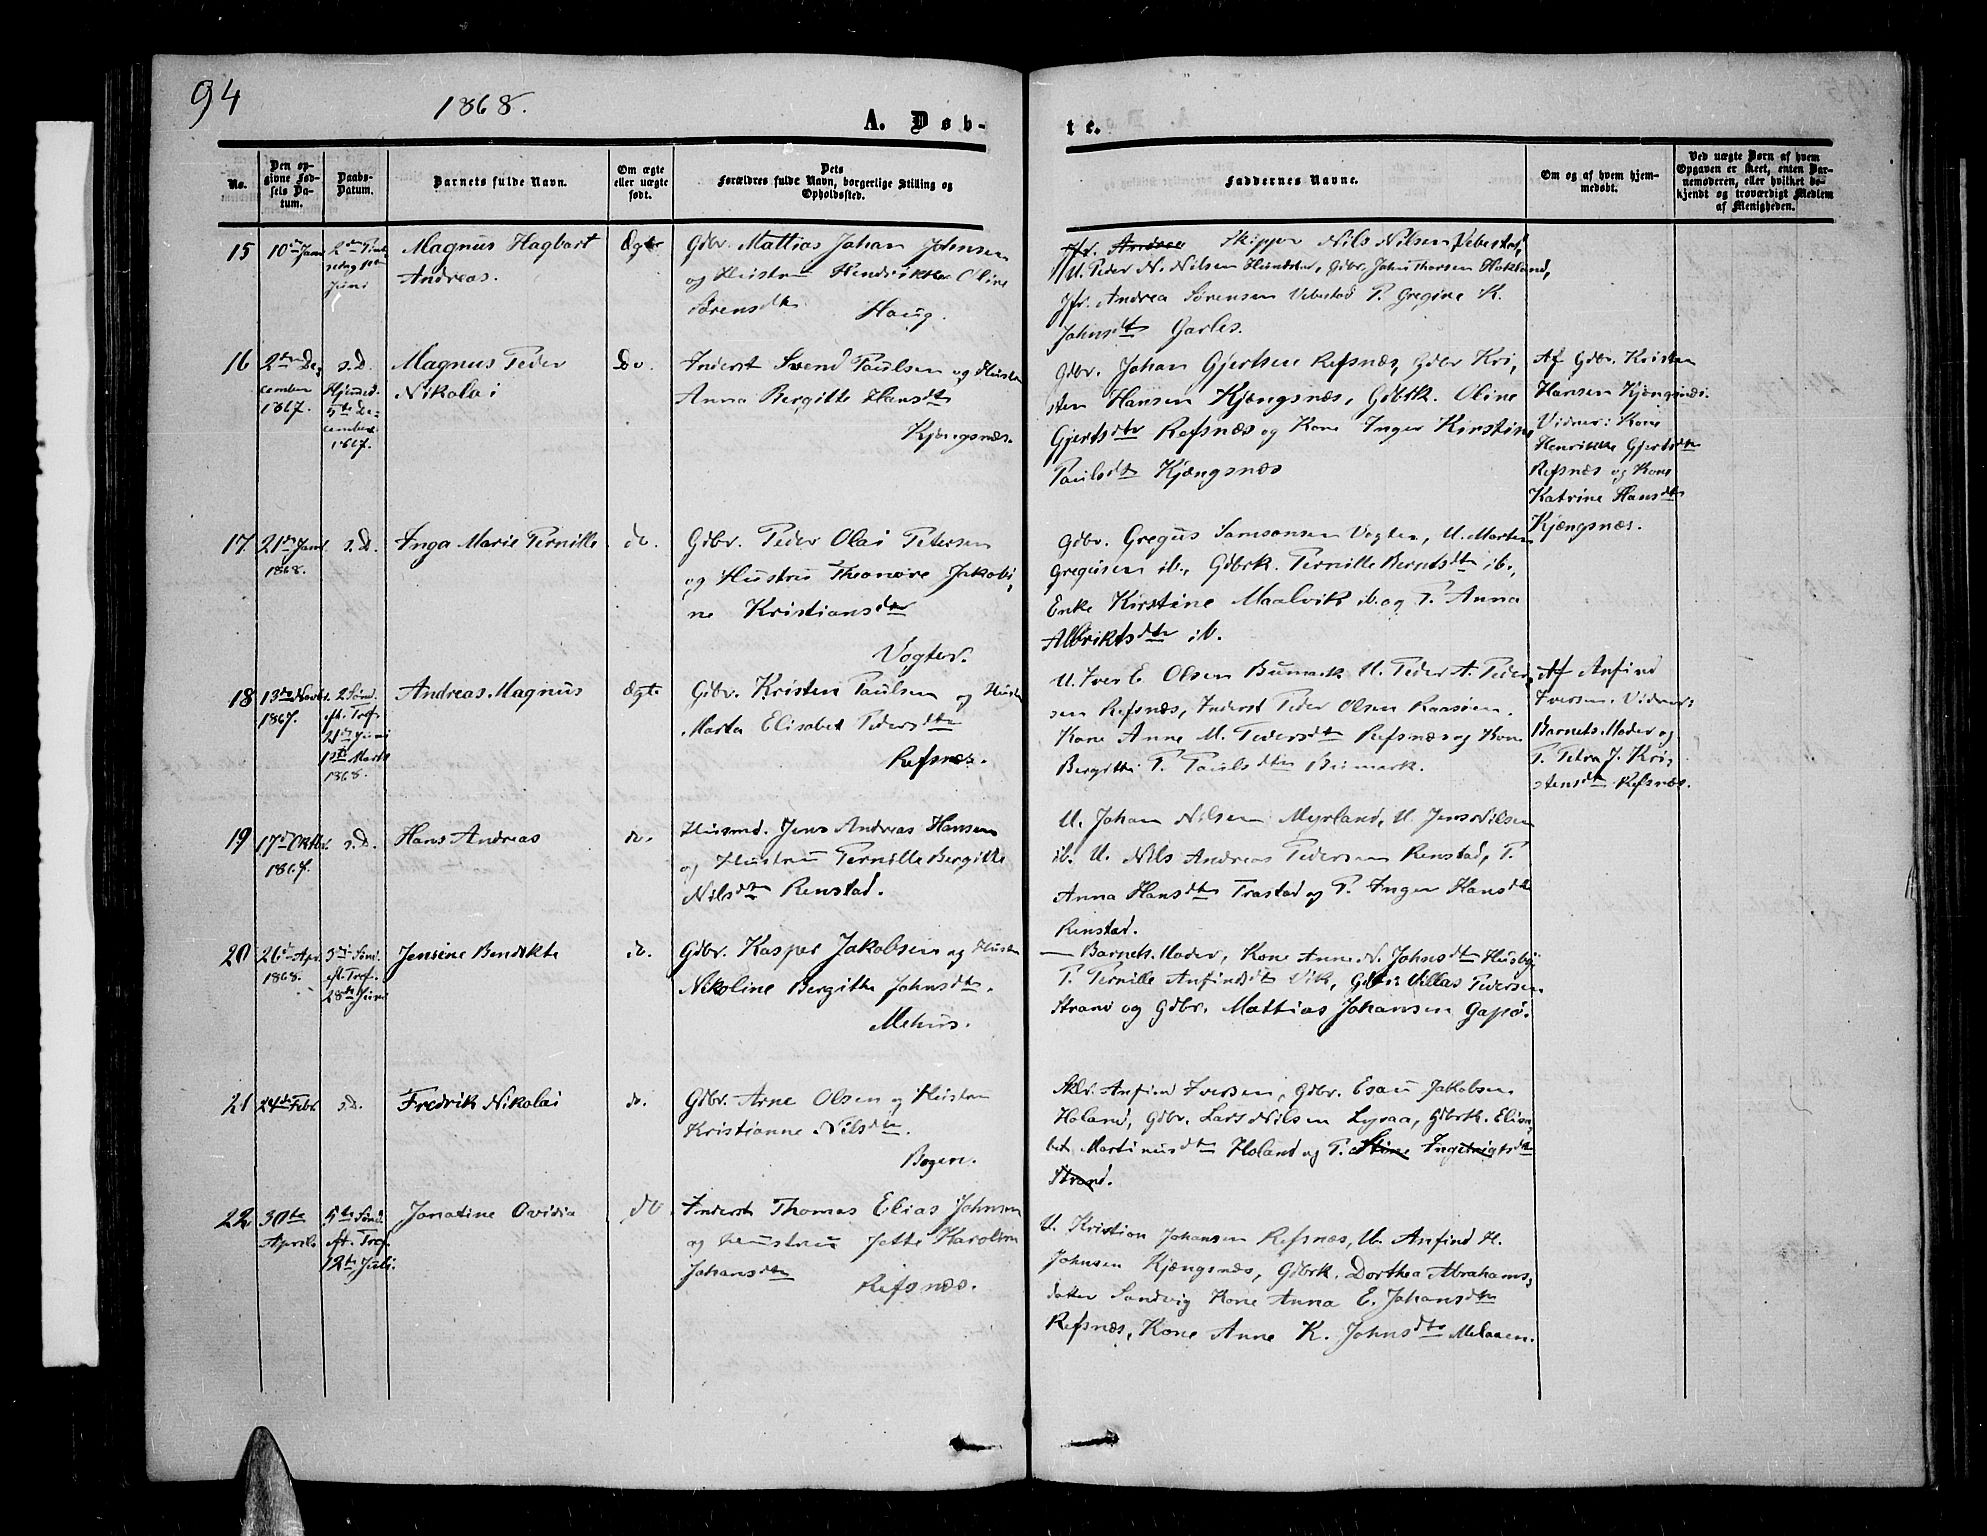 94
1868.
A. Døb-
te.
No.
Den op-
givne Fød-
sels Da-
tum.
Daabs-
Datum.
Barnets fulde Navn.
Om ægte
eller uægte
født.
Dets
Forældres fulde Navn, borgerlige Stilling og
Opholdssted.
Faddernes Navne.
Om og af hvem hjem-
medøbt.
Ved uægte Børn af hvem
Opgaven er skeet, enten Bar-
nemoderen, eller hvilket be-
kjendt og troværdigt Medlem
af Menigheden.
15
10de Janr
2den Pint
sedag
Juni
Magnus Hagbart
Andreas.
Ægte
Gdbr. Mattias Johan Johnsen
og Hustru Hendrikke Oline
Sørensdtr
Haug.
Jfr. Andrea Skipper Nils Nilsen Vebestad,
U. Peder N. Nilsen Hundstad, Gdbr. John Thorsen Hokland,
Jfr. Andrea Sørensen Vebestad P. Gregine K.
Johnsdtr Garles.
16
2den De-
cember
1867.
s.D.
Hjemmed.
5te De-
cember
1867.
Magnus Peder
Nikolai
Do.
Inderst Svend Paulsen og Hustru
Anna Bergitte Hansdtr
Kjøngsnæs.
Gdbr. Johan Gjertsen Refsnæs, Gdbr Kri-
sten Hansen Kjængsnæs, Gdbrk. Oline
Gjertsdtr Refsnæs og Kone Inger Kirstine
Paulsdtr Kjængsnæs
Af Gdbr. Kristen
Hansen Kjængsnæs.
Vidner: Kone
Henrikke Gjertsdtr
Refsnæs og Kone
Katrine Hansdtr
Kjængsnæs.
17.
21de Janr
1868.
s.D.
Inga Marie Pernille
do.
Gdbr. Peder Olai Petersen
og Hustru Theonore Jakobi-
ne Kristiansdtr
Vogter.
Gdbr. Gregus Samsonsen Vogter, U. Morten
Gregusen ib., Gdbrk. Pernille Berntsdtr ib.,
Enke Kirstine Maalvik ib. og P. Anna
Albriktsdtr ib.
18
13de Novbr.
1867.
2 Sønd.
eft. Tref.
21de Juni
13de Marts
1868.
Andreas Magnus
Ægte
Gdbr. Kristen Paulsen og Hustru
Marta Elisabet Pedersdtr
Refsnæs.
U. Iver E. Olsen Bumark U. Peder A. Peder-
sen Refsnæs, Inderst Peder Olsen
Kone Anne M. Pedersdtr Refsnæs og Kone
Bergitte P. Paulsdtr Bumark.
Af Anfind
Iversen. Vidner:
Barnets Moder og
P. Petra J. Kri-
stensdtr Refsnæs.
19
17de Oktbr.
1867.
s.D.
Hans Andreas
do.
Husmd. Jens Andreas Hansen
og Hustru Pernille Bergitte
Nilsdtr Renstad.
U. Johan Nilsen Myrland, U. Jens Nilsen
ib. U. Nils Andreas Pedersen Renstad, P.
Anna Hansdtr Trastad og P. Inger Hansdtr
Renstad.
20
26de Apr.
1868.
3die Sønd.
eft. Tref.
28de Juni
Jensine Bendikte
do.
Gdbr. Kaspar Jakobsen og Hustru
Nikoline Bergitte Johnsdtr.
Mehus.
— Barnets Moder, Kone Anne N. Johnsdtr Husby
P. Pernille Anfindsdtr Vik, Gdbr: Villas Pedersen
Strand og Gdbr. Mattias Johansen Gapø.
21
24de Febr
s.D.
Fredrik Nikolai
do.
Gdbr. Arne Olsen og Hustru
Kristianne Nilsdtr.
Bogen.
Sklr. Anfind Iversen, Gdbr. Esau Jakobsen
Holand, Gdbr. Lars Nilsen Lysaa, Gdbrk. Elisa-
bet Martinusdtr Holand og P. Stine Ingebrigtsdtr
Strand.
22
30te
April
5te Sønd.
eft. Tref.
12te Juli.
Jonatine Ovidia
do
Inderst Thomas Elias Johnsen
og Hustru Jette Karoline
Johansdtr
Refsnæs.
U. Kristian Johansen Refsnæs, U. Anfind H.
Johnsen Kjængsnæs, Gdbrk. Dorthea Abrahams-
datter Sandvig Kone Anna E. Johansdtr
Refsnæs, Kone Anne K. Johnsdtr Melaaen.